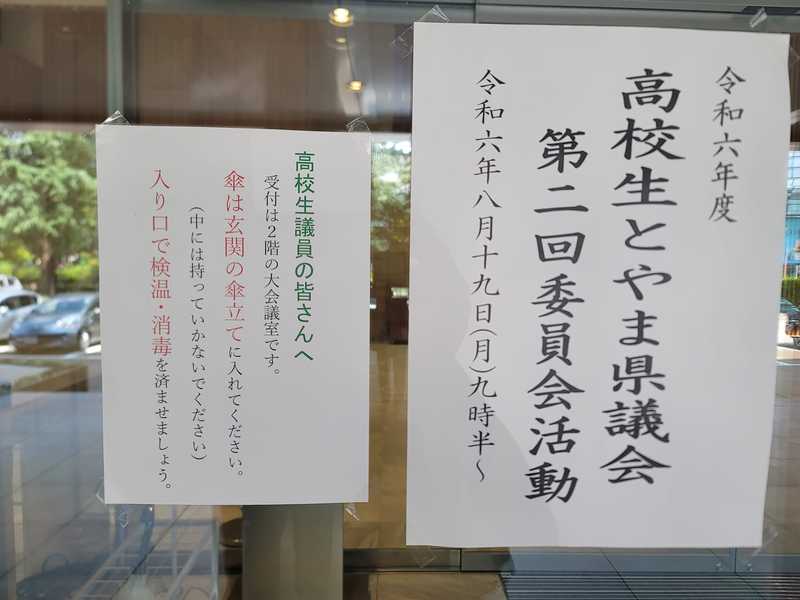 令和六年度
高校生とやま県議会
第二回委員会活動
令和六年八月十九日(月)九時半～
高校生議員の皆さんへ
受付は２階の大会議室です。
傘は玄関の傘立てに入れてください。
(中には持っていかないでください)
入り口で検温・消毒を済ませましょう。